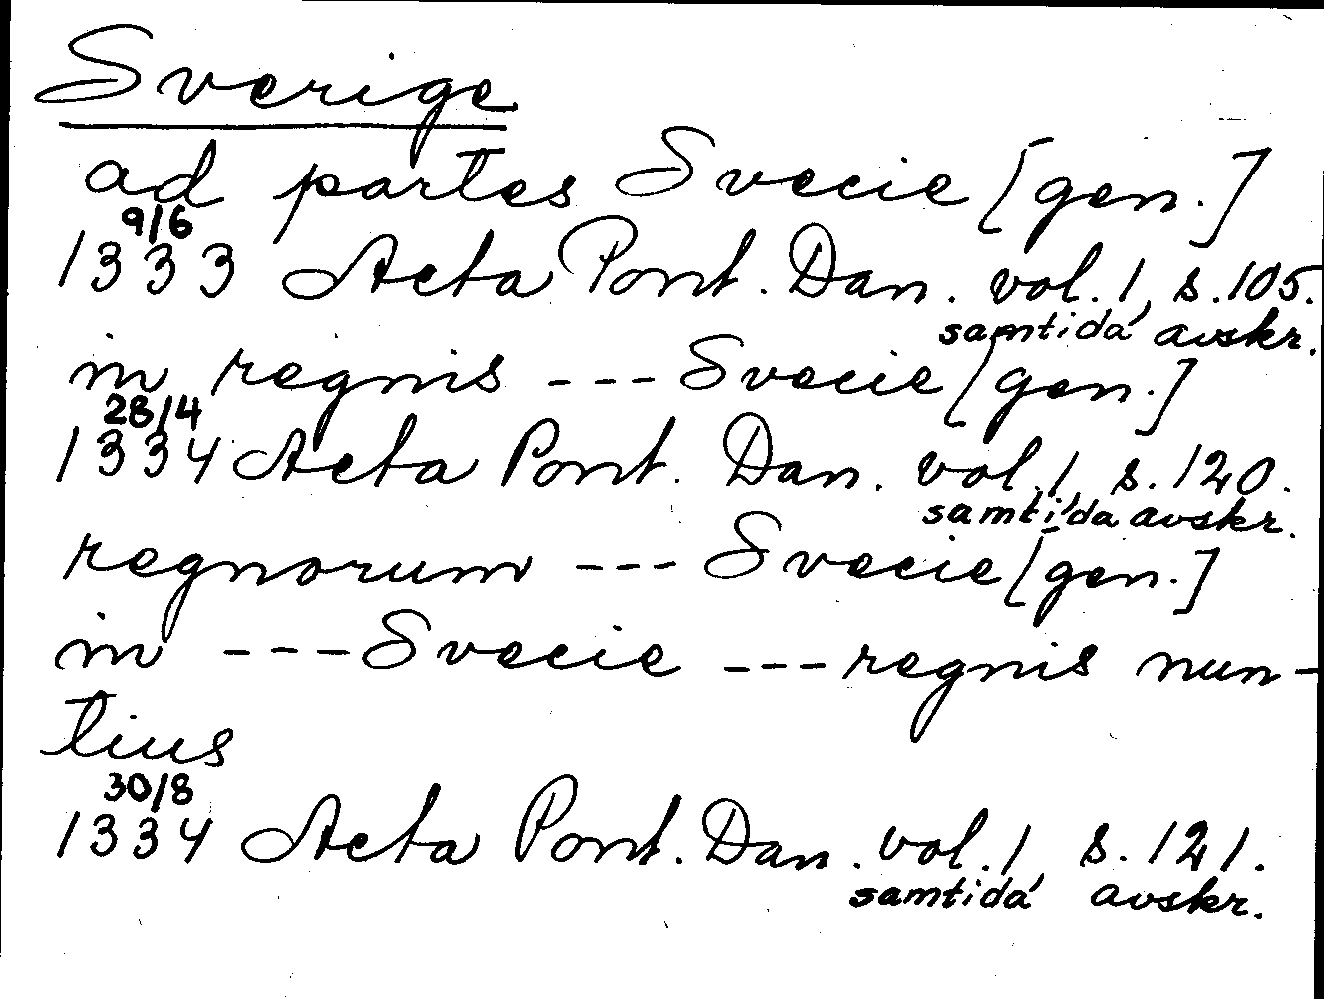 Sverige
ad partes Svecie [gen.]
9/6
1333 Acta Pont. Dan. vol. 1, s. 105.
samtida avskr.
in regnis --- Svecie [gen.]
28/4
1334 Acta Pont. Dan. vol. 1, s. 120.
samtida avskr.
regnorum --- Svecie [gen.]
in --- Svecie --- regnis nun-
tius
30/8
1334 Acta Pont. Dan. vol. 1, s. 121.
samtida avskr.